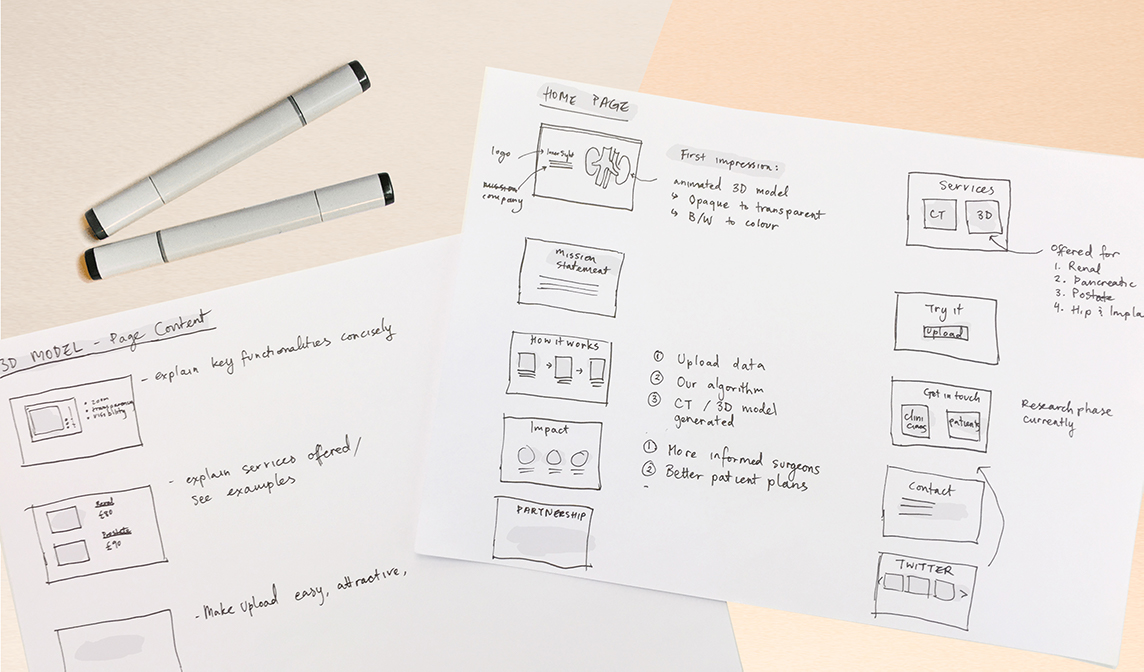 HOME PAGE
logo
InnerSight
mission
company
First impression:
animated 3D model
↳ Opaque to transparent
↳ B/W to colour
Mission
statement
How it works
① Upload data
② Our algorithm
③ CT / 3D model
generated
Impact
① More informed surgeons
② Better patient plans
-
PARTNERSHIP
Services
CT
3D
Offered for
1. Renal
2. Pancreatic
3. Postate
4. Hip & Impla
Try it
upload
Get in touch
clini
cians
patients
Research phase
currently
Contact
TWITTER
3D MODEL - Page Content
- explain key functionalities concisely
• zoom
• transparency
• visibility
- explain services offered/
see examples
Renal
£80
Prostate
£90
- Make upload easy, attractive,